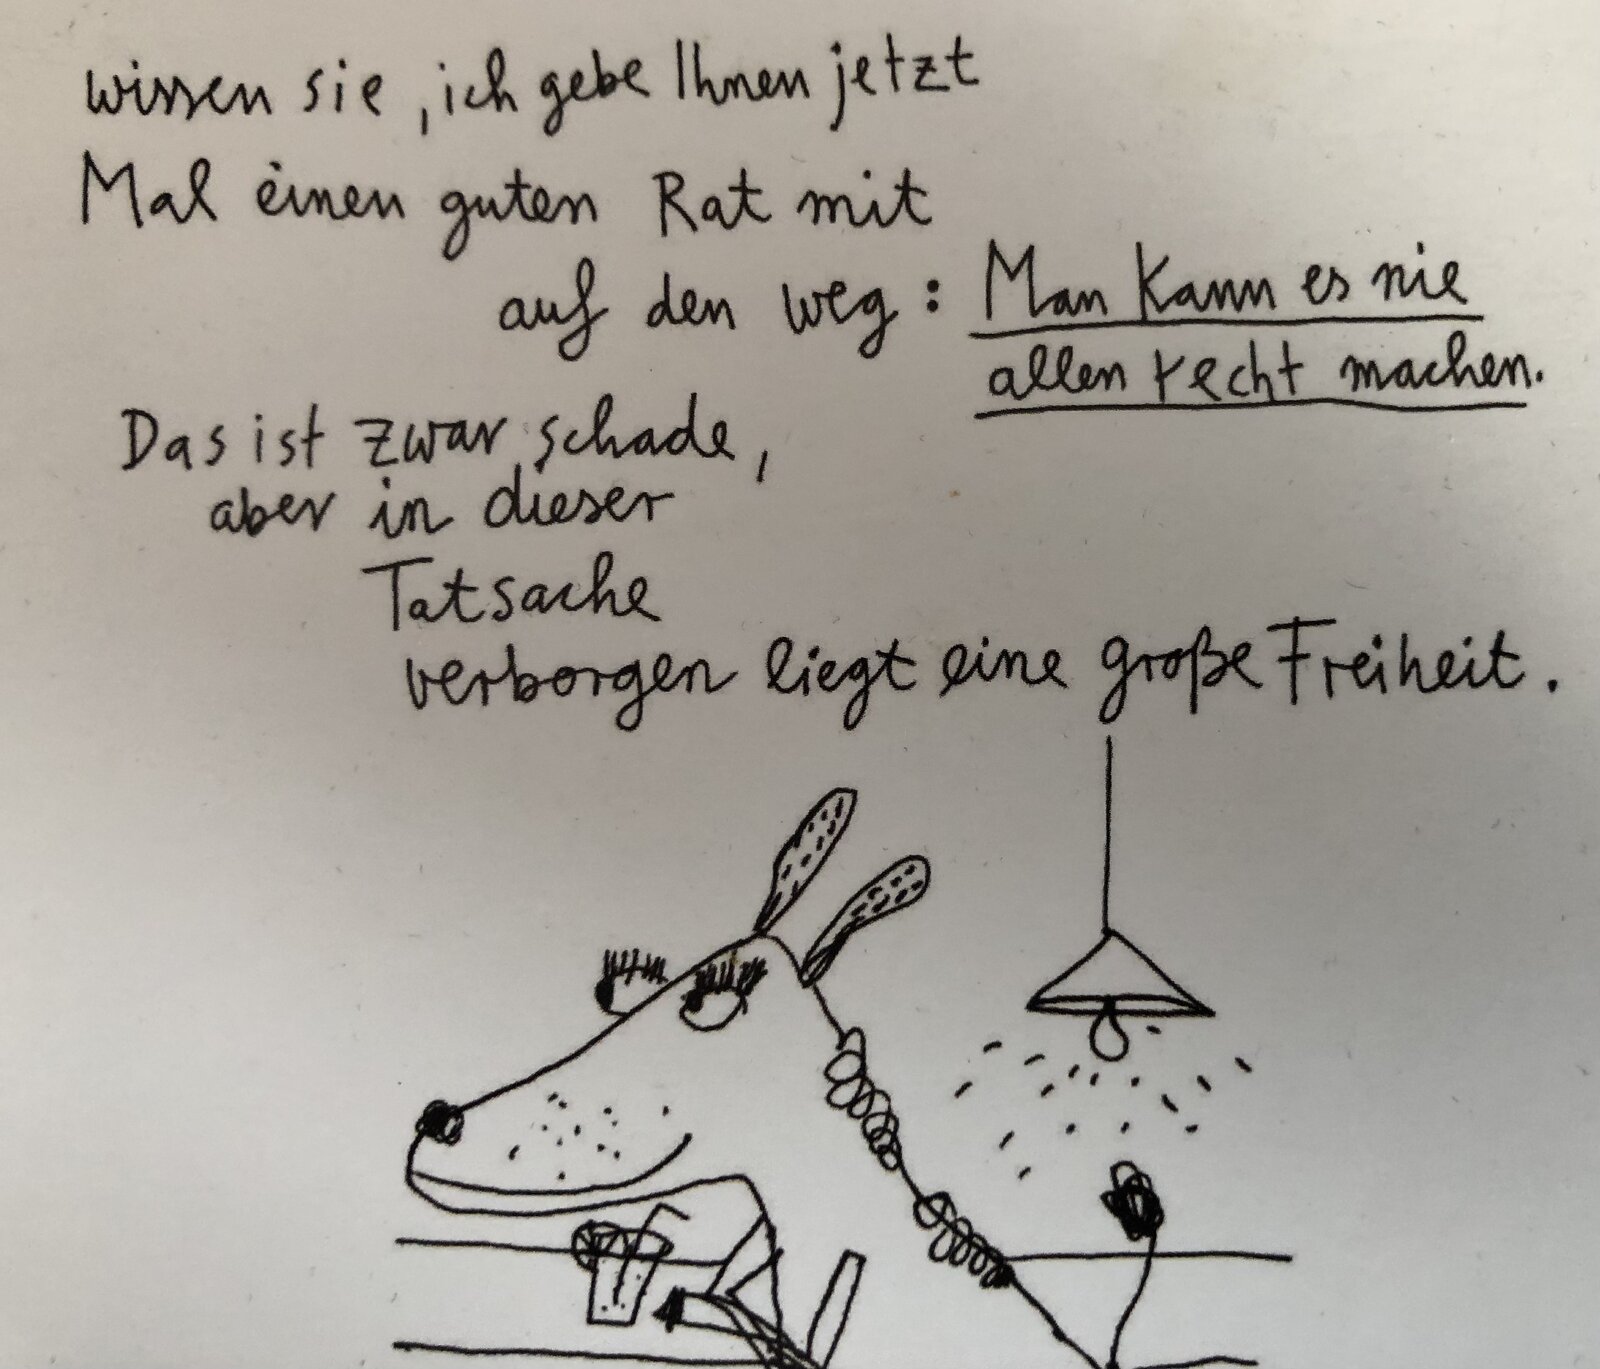 wissen sie, ich gebe Ihnen jetzt
Mal einen guten Rat mit
auf den weg: Man kann es nie
allen recht machen.
Das ist zwar schade,
aber in dieser
Tatsache
verborgen liegt eine große Freiheit.